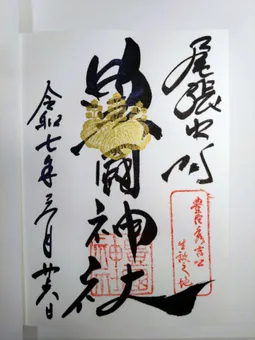 尾張中村
豊臣秀吉公
生誕之地
豊國神社
令和七年三月廿六日